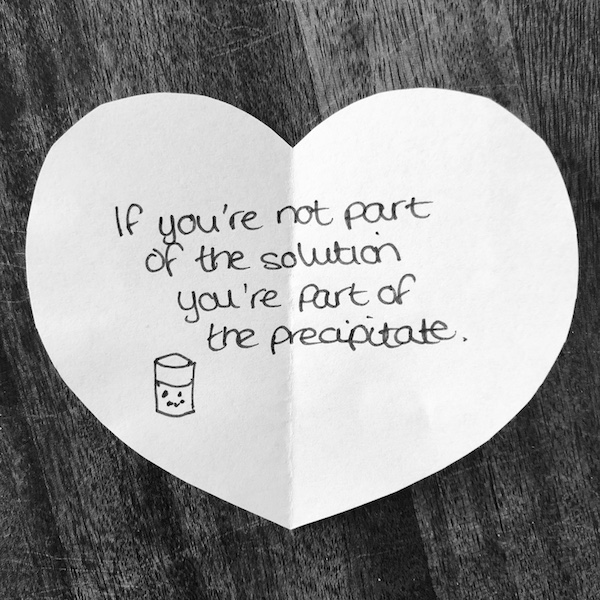 If you're not part
of the solution
you're part of
the precipitate.